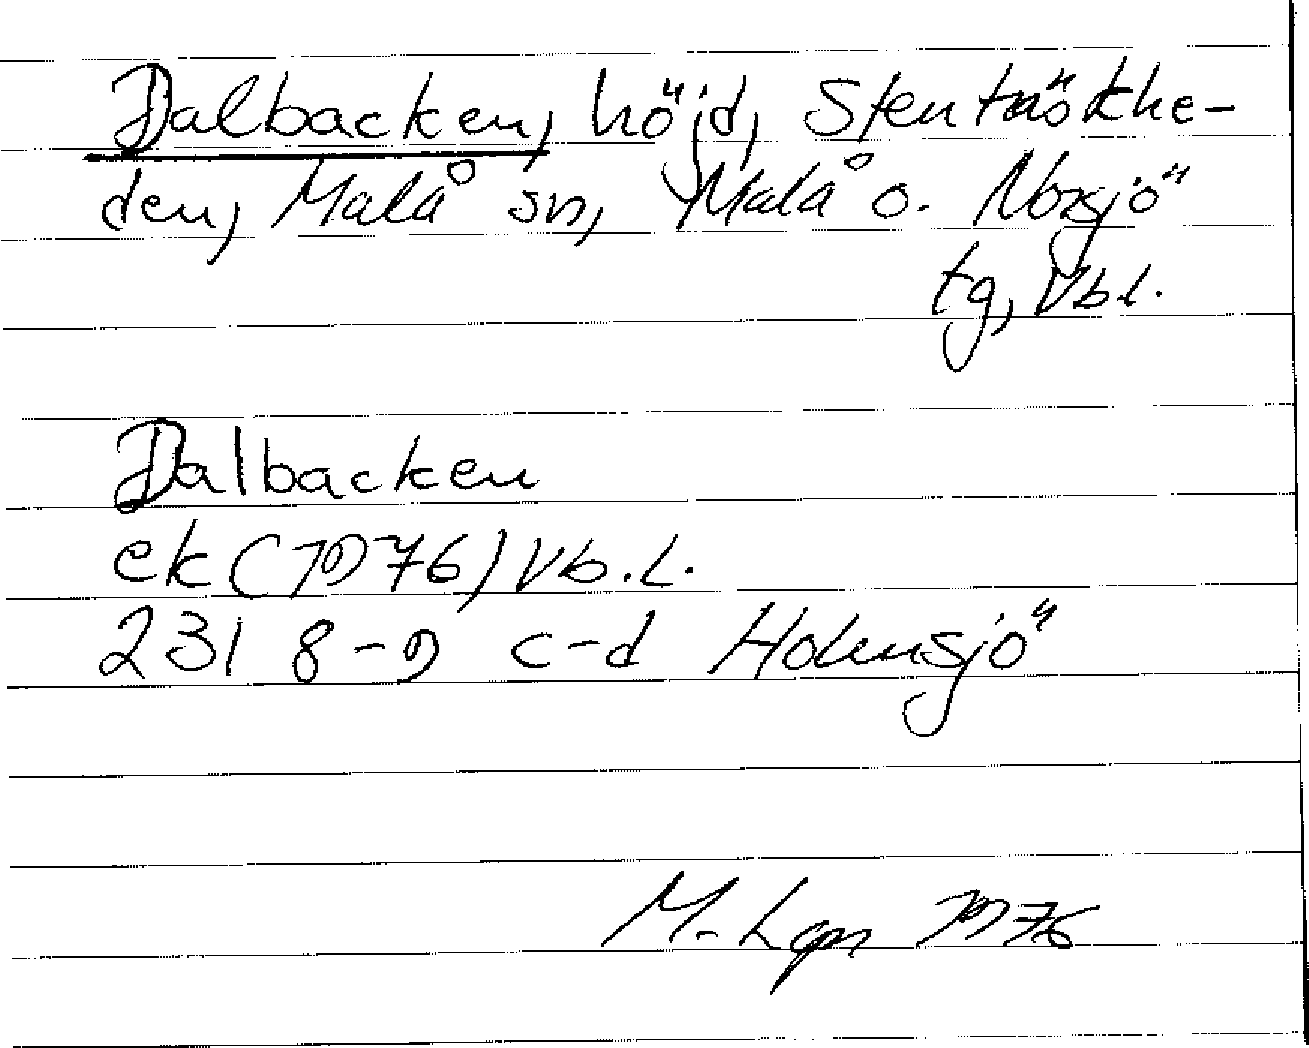 Dalbacken, höjd, Stenträskhe-
den, Malå sn, Malå o. Norsjö
tg, Vbl.
Dalbacken
ek (1976) Vb.l.
231 8-9 c-d Holmsjö
M. Lgn 1976